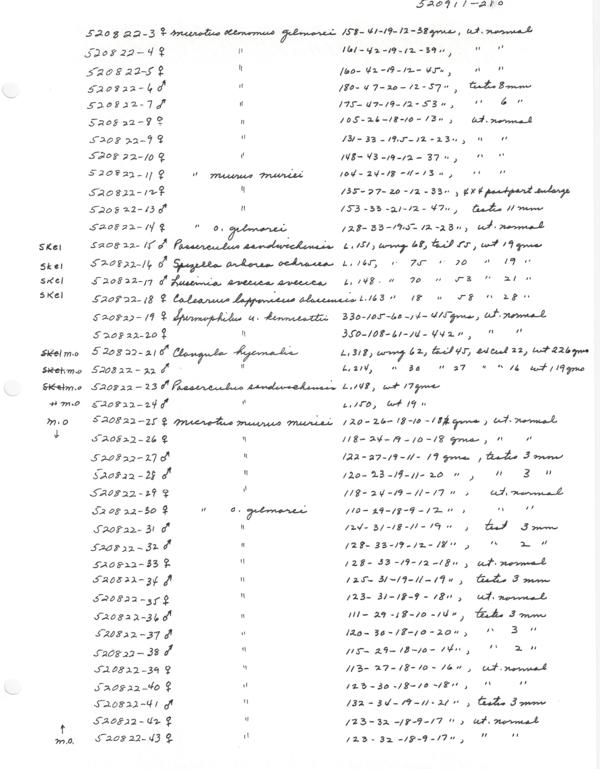 520911-280
520822-3 ♀ Microtus oeconomus gilmorei 158-41-19-12-38gms, ut. normal
520822-4 ♀ " 161-42-19-12-39", " "
520822-5 ♀ " 160-42-19-12-45", " "
520822-6 ♂ " 180-47-20-12-57", testis 8mm
520822-7 ♂ " 175-47-19-12-53", " 6 "
520822-8 ♀ " 105-26-18-10-13", ut. normal
520822-9 ♀ " 131-33-19.5-12-23", " "
520822-10 ♀ " 148-43-19-12-37", " "
520822-11 ♀ " miurus muriei 104-24-18-11-13", " "
520822-12 ♀ " 135-27-20-12-33", 4x4 postpart enlarge
520822-13 ♂ " 153-33-21-12-47", testis 11mm
520822-14 ♀ " o. gilmorei 128-33-19.5-12-23", ut. normal
SKel 520822-15 ♂ Passerculus sandwichensis L.151, wing 68, tail 55, wt 19gms
Skel 520822-16 ♂ Spizella arborea ochracea L.165, " 75 " 70 " 19 "
SKel 520822-17 ♂ Luscinia svecica svecica L.148. " 70 " 53 " 21 "
SKel 520822-18 ♀ Calcarius lapponicus alascensis L.163 " 18 " 58 " 28 "
520822-19 ♀ Spermophilus u. kennicottii 330-105-60-14-415gms, ut. normal
520822-20 ♀ 350-108-61-14-442", " "
SKel m.o 520822-21 ♂ Clangula hyemalis L.318, wing 62, tail 45, excul 22, wt 226gms
SKel m.o 520822-22 ♂ L.214, " 30 " 27 " " 16 wt, 19gms
SKel m.o 520822-23 ♂ Passerculus sandwichensis L.148, wt 17gms
" m.o 520822-24 ♂ " L.150, wt 19"
m.o 520822-25 ♀ Microtus miurus muriei 120-26-18-10-18 gms, ut. normal
↓ 520822-26 ♀ " 118-24-19-10-18 gms, " "
520822-27 ♂ " 122-27-19-11-19 gms, testis 3mm
520822-28 ♂ " 120-23-19-11-20 ", " 3 "
520822-29 ♀ " 118-24-19-11-17 ", ut. normal
520822-30 ♀ " o. gilmorei 110-29-18-9-12 ", "
520822-31 ♂ " 124-31-18-11-19 ", test 3mm
520822-32 ♂ " 128-33-19-12-18", " 2 "
520822-33 ♀ " 128-33-19-12-18", ut. normal
520822-34 ♂ " 125-31-19-11-19", testis 3mm
520822-35 ♀ " 123-31-18-9-18", ut. normal
520822-36 ♂ " 111-29-18-10-14", testis 3mm
520822-37 ♂ " 120-30-18-10-20", " 3 "
520822-38 ♂ " 115-29-18-10-14", " 2 "
520822-39 ♀ " 113-27-18-10-16", ut. normal
520822-40 ♀ " 123-30-18-10-18", " "
520822-41 ♂ " 132-34-19-11-21", testis 3mm
↑ 520822-42 ♀ " 123-32-18-9-17", ut. normal
m.o. 520822-43 ♀ " 123-32-18-9-17", " "